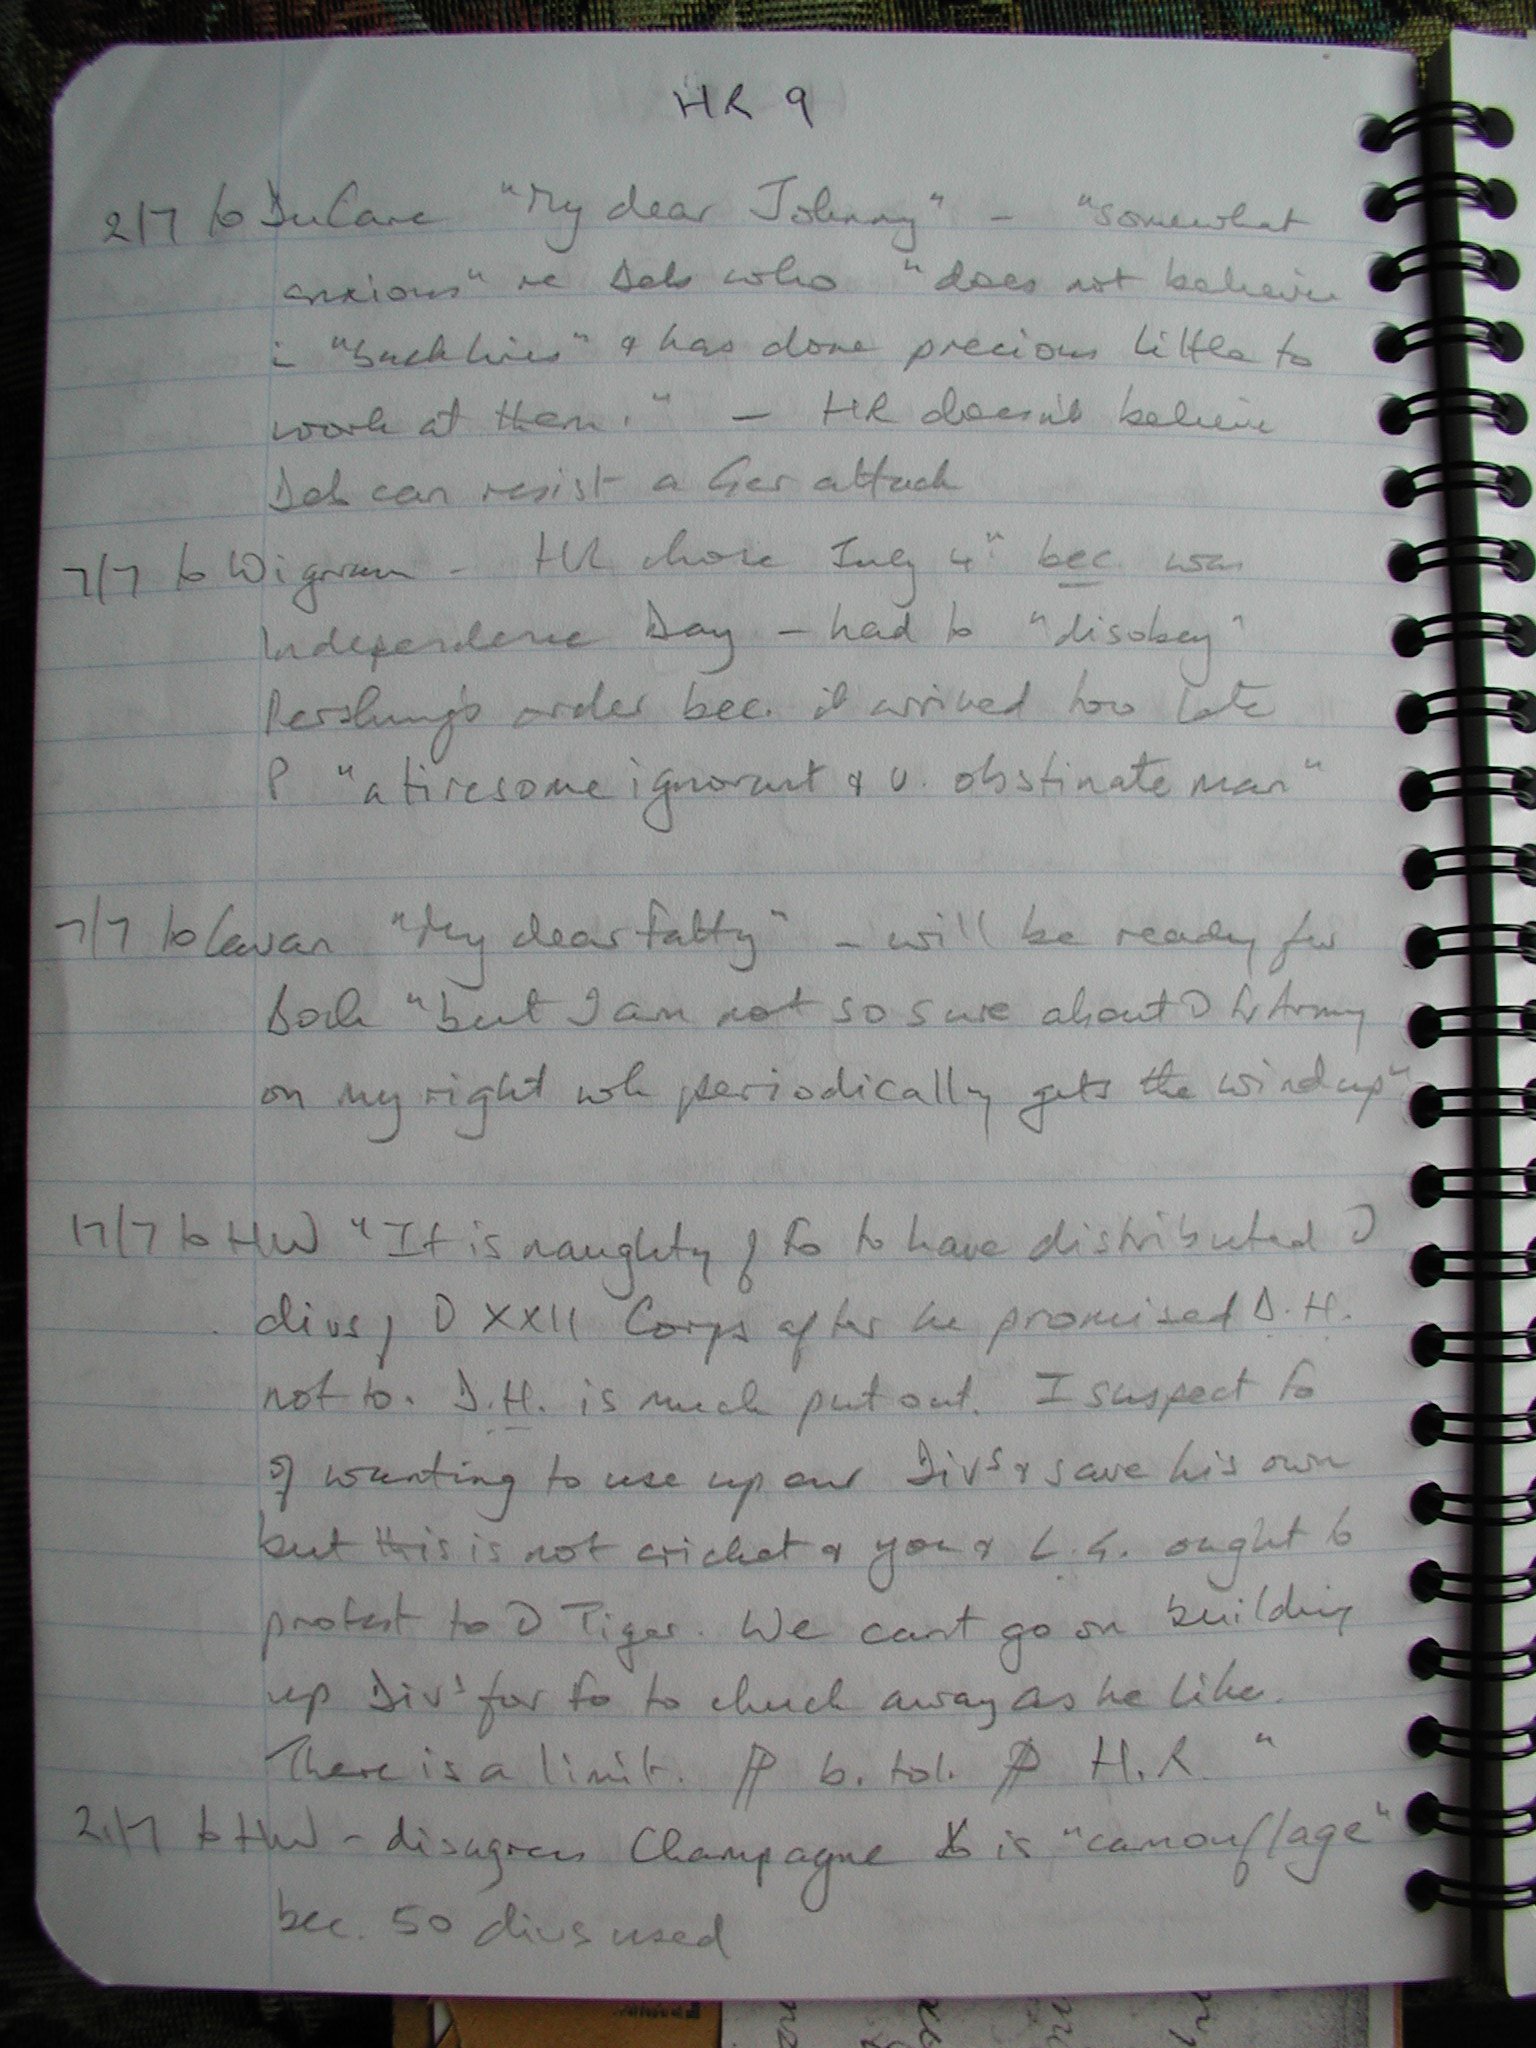 HR 9
2/7 to DuCane "My dear Johnny" - "somewhat
anxious" re Deb who "does not believe
in "back lines" & has done precious little to
work at them." - HR doesn't believe
Deb can resist a Ger attack
7/7 to Wigram - HR chose July 4th bec. was
Independence Day - had to "disobey"
Pershing's order bec. it arrived too late
P "a tiresome ignorant & v. obstinate man"
7/7 to Cavan "My dear Fatty" - will be ready for
Boch "but I am not so sure about Fr Army
on my right wh periodically gets the wind up"
17/7 to HW "It is naughty of Fo to have distributed
divs of XXII Corps after he promised D.H.
not to. D.H. is much put out. I suspect Fo
of wanting to use up our Divs & save his own
but this is not cricket & you & L.G. ought to
protest to Tiger. We cant go on building
up Divs for Fo to chuck away as he likes.
There is a limit. b. tol. H.R. "
21/7 to HW - disagrees Champagne is "camouflage"
bec. 50 divs used